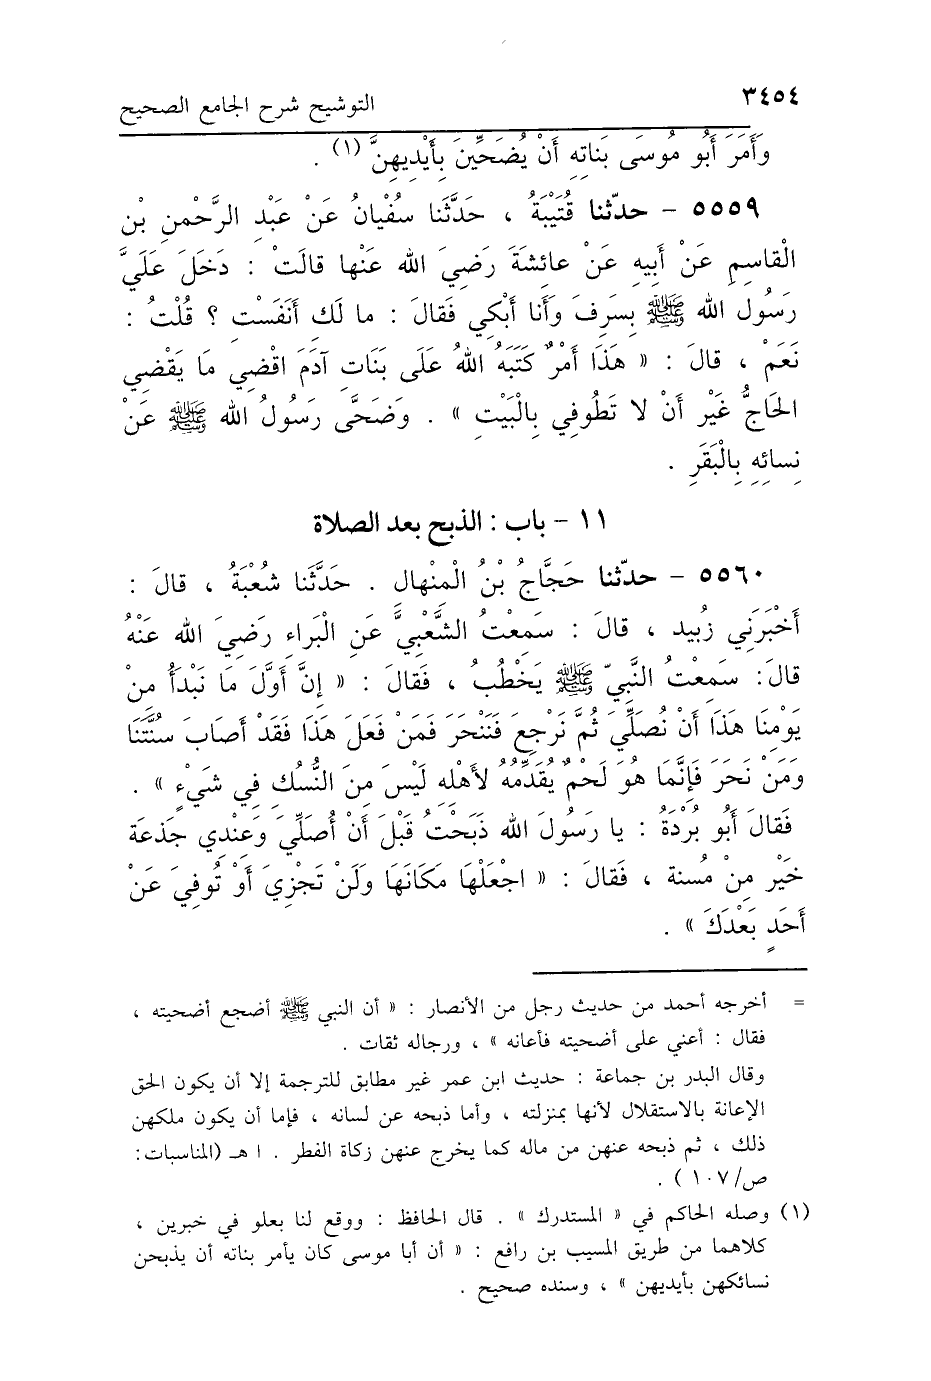 ٣٤٥٤ التوشيح شرح الجامع الصحيح
وَأَمَرَ أَبُو مُوسَى بَنَاتِهِ أَنْ يُضَحِّينَ بِأَيْدِيهِنَّ (١) .
٥٥٥٩ - حدّثنا قُتَيْبَةُ ، حَدَّثَنا سُفْيانُ عَنْ عَبْدِ الرَّحْمنِ بْنِ
الْقاسِمِ عَنْ أَبيهِ عَنْ عائِشَةَ رَضِيَ الله عَنْها قالَتْ : دَخَلَ عَلَيَّ
رَسُول الله ﷺ بِسَرِفَ وَأَنا أَبْكِي فَقالَ : ما لَكِ أَنَفَسْتِ ؟ قُلْتُ :
نَعَمْ ، قالَ : « هَذَا أَمْرٌ كَتَبَهُ اللهُ عَلَى بَنَاتِ آدَمَ اقْضِي مَا يَقْضِي
الحَاجُّ غَيْرَ أَنْ لا تَطُوفِي بِالْبَيْتِ » . وَضَحَّى رَسُولُ الله ﷺ عَنْ
نِسائِهِ بِالْبَقَرِ .
١١ - باب : الذبح بعد الصلاة
٥٥٦٠ - حدّثنا حَجَّاجُ بْنُ الْمِنْهال . حَدَّثَنا شُعْبَةُ ، قالَ :
أَخْبَرَنِي زُبيد ، قالَ : سَمِعْتُ الشَّعْبِيَّ عَنِ الْبَراءِ رَضِيَ الله عَنْهُ
قالَ: سَمِعْتُ النَّبِيّ ﷺ يَخْطُبُ ، فَقالَ : « إِنَّ أَوَّلَ مَا نَبْدَأُ مِنْ
يَوْمِنَا هَذَا أَنْ نُصَلِّيَ ثُمَّ نَرْجِعَ فَنَنْحَرَ فَمَنْ فَعَلَ هَذَا فَقَدْ أَصَابَ سُنَّتَنَا
وَمَنْ نَحَرَ فَإِنَّمَا هُوَ لَحْمٌ يُقَدِّمُهُ لأَهْلِهِ لَيْسَ مِنَ النُّسُكِ فِي شَيْءٍ » .
فَقالَ أَبُو بُرْدَةُ : يا رَسُولَ الله ذَبَحْتُ قَبْلَ أَنْ أُصَلِّيَ وَعِنْدِي جَذعَة
خَيْر مِنْ مُسنة ، فَقالَ : « اجْعَلْهَا مَكَانَهَا وَلَنْ تَجْزِيَ أَوْ تُوفِيَ عَنْ
أَحَدٍ بَعْدَكَ » .
= أخرجه أحمد من حديث رجل من الأنصار : « أن النبي ﷺ أضجع أضحيته ،
فقال : أعني على أضحيته فأعانه » ، ورجاله ثقات .
وقال البدر بن جماعة : حديث ابن عمر غير مطابق للترجمة إلا أن يكون الحق
الإعانة بالاستقلال لأنها بمنزلته ، وأما ذبحه عن لسانه ، فإما أن يكون ملكهن
ذلك ، ثم ذبحه عنهن من ماله كما يخرج عنهن زكاة الفطر . ا هـ (المناسبات:
ص/١٠٧) .
(١) وصله الحاكم في « المستدرك » . قال الحافظ : ووقع لنا بعلو في خبرين ،
كلاهما من طريق المسيب بن رافع : « أن أبا موسى كان يأمر بناته أن يذبحن
نسائكهن بأيديهن » ، وسنده صحيح .